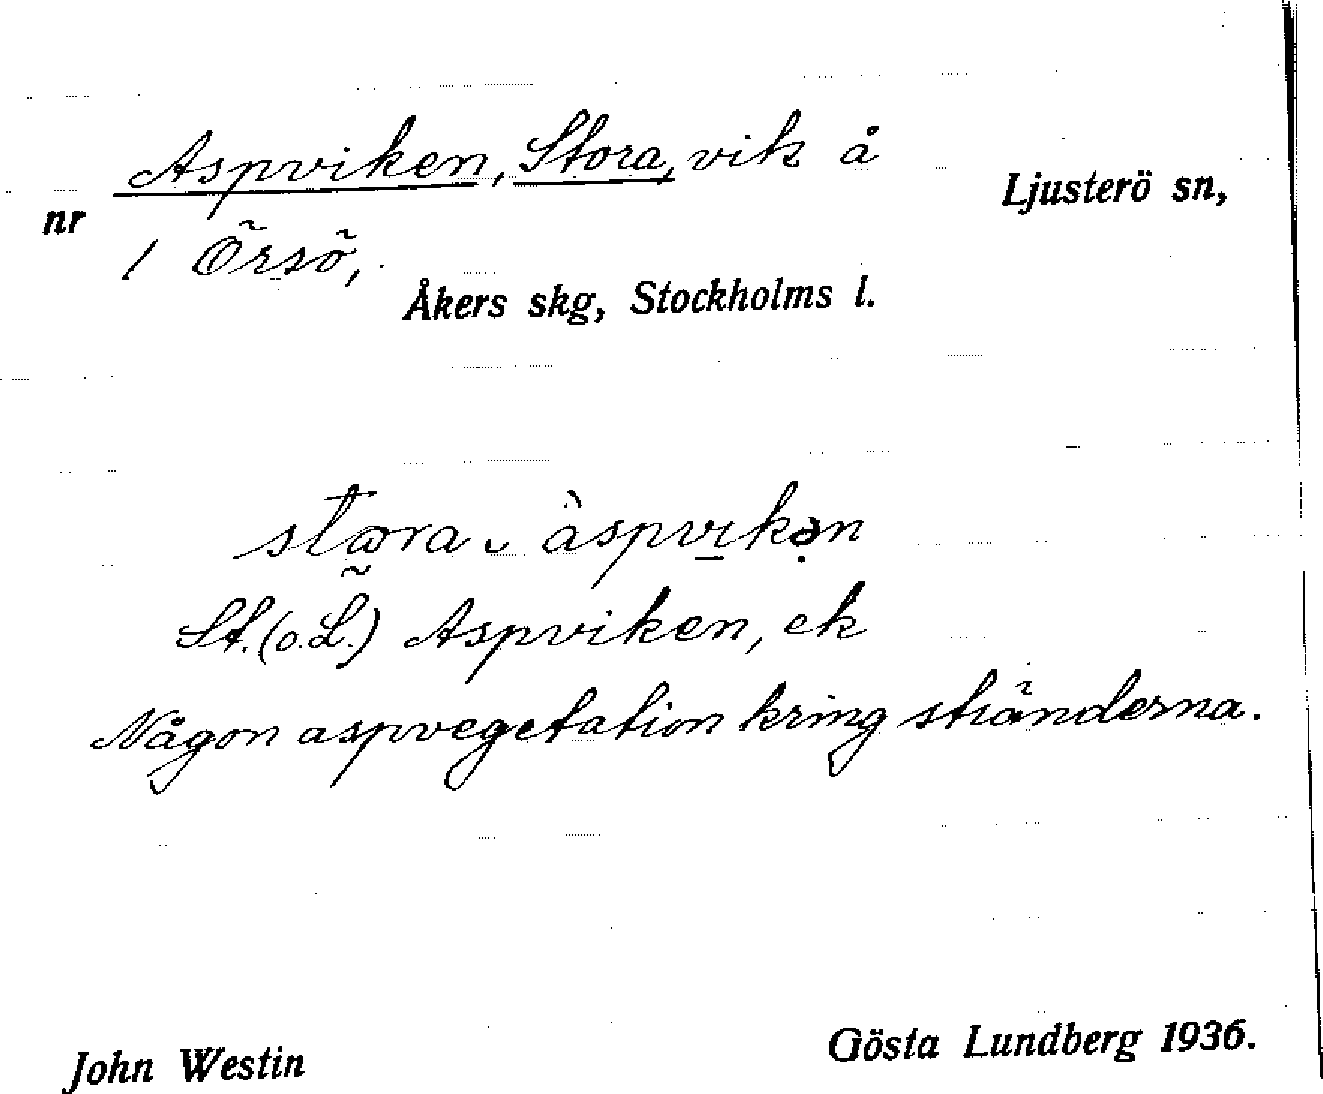 Aspviken, Stora, vik å
Ljusterö sn,
nr
1 Örsö,
Åkers skg, Stockholms l.
stɷra ᴗ àspvɪkən
St. (o. L.) Aspviken, ek
Någon aspvegetation kring stränderna.
John Westin
Gösta Lundberg 1936.